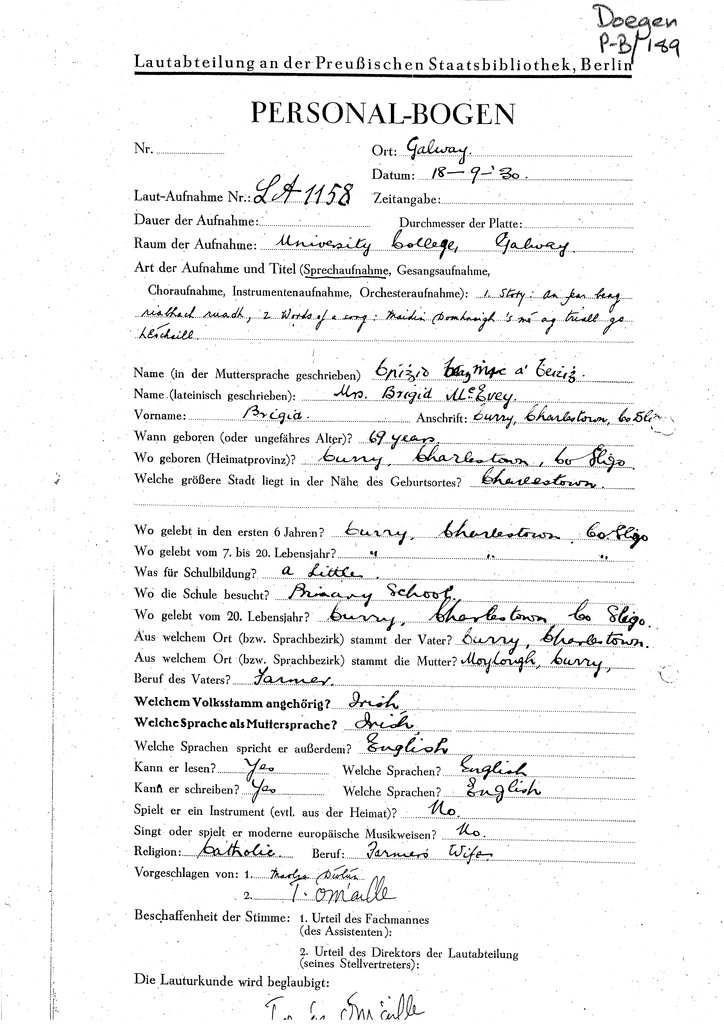 Doegen
P-B/189
Lautabteilung an der Preußischen Staatsbibliothek, Berlin
PERSONAL-BOGEN
Nr.
Ort: Galway.
Datum: 18-9-'30.
Laut-Aufnahme Nr.: LA 1158 Zeitangabe:
Dauer der Aufnahme: Durchmesser der Platte:
Raum der Aufnahme: University College, Galway.
Art der Aufnahme und Titel (Sprechaufnahme, Gesangsaufnahme,
Choraufnahme, Instrumentenaufnahme, Orchesteraufnahme): 1. Story: An fear beag
riabhach ruadh, 2 Words of a song: Maidin Domhnaigh 's mé ag triall go
Name (in der Muttersprache geschrieben) Brigid
Name (lateinisch geschrieben): Mrs. Brigid McEvey.
Vorname: Brigid. Anschrift: Curry, Charlestown, Co Sligo
Wann geboren (oder ungefähres Alter)? 69 years.
Wo geboren (Heimatprovinz)? Curry, Charlestown, Co Sligo
Welche größere Stadt liegt in der Nähe des Geburtsortes? Charlestown.
Wo gelebt in den ersten 6 Jahren? Curry, Charlestown, Co. Sligo
Wo gelebt vom 7. bis 20. Lebensjahr? " " "
Was für Schulbildung? A little.
Wo die Schule besucht? Primary School.
Wo gelebt vom 20. Lebensjahr? Curry, Charlestown Co Sligo.
Aus welchem Ort (bzw. Sprachbezirk) stammt der Vater? Curry, Charlestown.
Aus welchem Ort (bzw. Sprachbezirk) stammt die Mutter? Moylough, Curry,
Beruf des Vaters? Farmer.
Welchem Volksstamm angehörig? Irish
Welche Sprache als Muttersprache? Irish
Welche Sprachen spricht er außerdem? English
Kann er lesen? Yes Welche Sprachen? English
Kann er schreiben? Yes Welche Sprachen? English
Spielt er ein Instrument (evtl. aus der Heimat)? No.
Singt oder spielt er moderne europäische Musikweisen? No.
Religion: Catholic. Beruf: Farmer's Wife
Vorgeschlagen von: 1.
2. T. Ó Máille
Beschaffenheit der Stimme: 1. Urteil des Fachmannes
(des Assistenten):
2. Urteil des Direktors der Lautabteilung
(seines Stellvertreters):
Die Lauturkunde wird beglaubigt:
Ó Máille